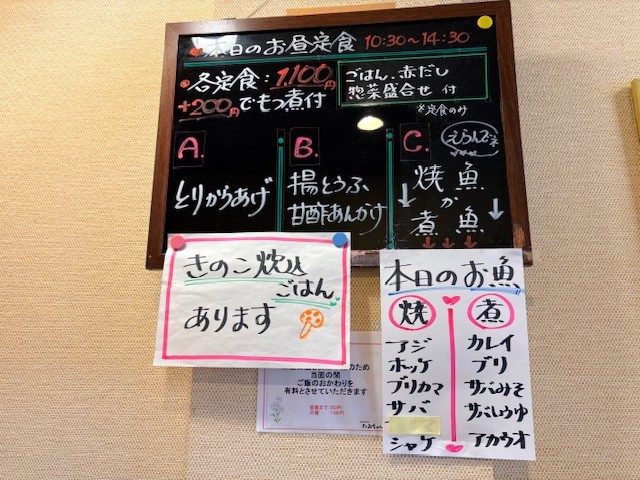 本日のお昼定食 10:30~14:30
各定食:1,100円
+200円でもつ煮付
ごはん、赤だし
惣菜盛合せ 付
※定食のみ
A.
とりからあげ
B.
揚とうふ
甘酢あんかけ
C.
えらんでネ
焼魚
か
煮魚
きのこ炊込
ごはん
あります
本日のお魚
焼
アジ
ホッケ
ブリカマ
サバ
シャケ
煮
カレイ
ブリ
サバみそ
サバしょうゆ
アカウオ
のため
当面の間
ご飯のおかわりを
有料とさせていただきます